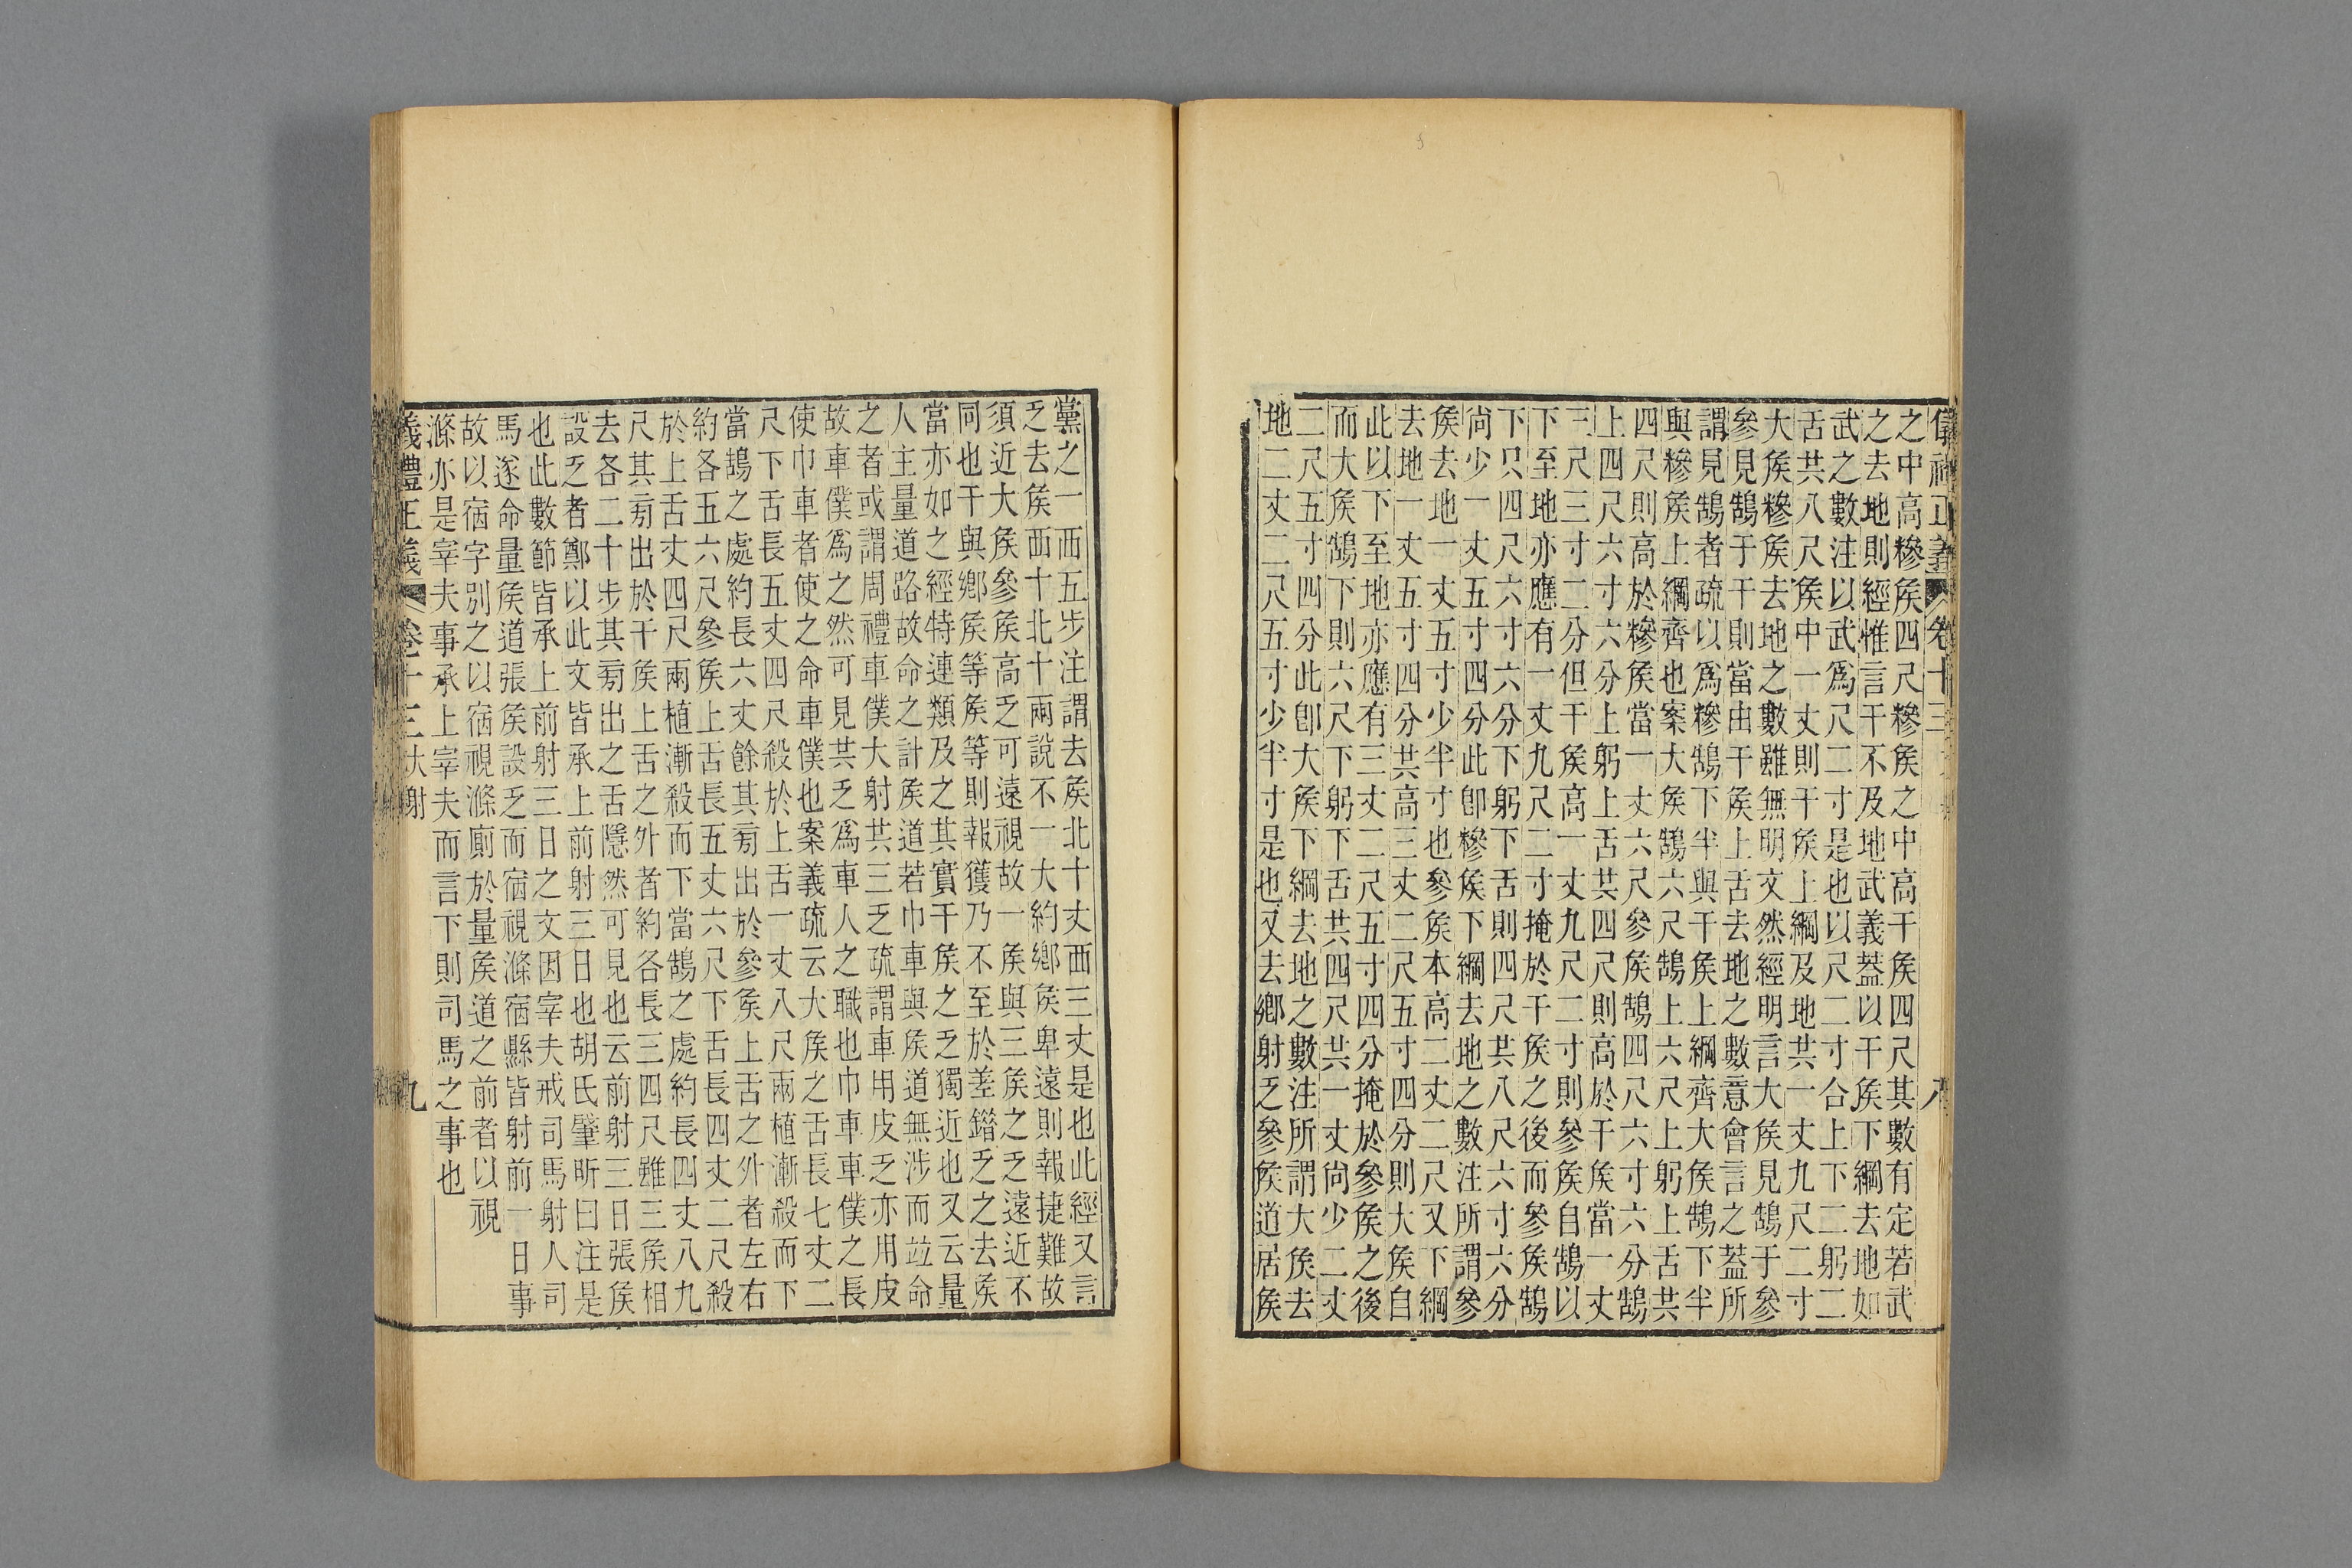 儀禮正義 卷十三 八
之中高糝矦四尺糝矦之中高干矦四尺其數有定若武
之去地則經惟言干不及地武義葢以干矦下綱去地如
武之數注以武爲尺二寸是也以尺二寸合上下二躬二
舌共八尺矦中一丈則干矦上綱及地共一丈九尺二寸
大矦糝矦去地之數雖無明文然經明言大矦見鵠于參
參見鵠于干則當由干矦上舌去地之數意會言之葢所
謂見鵠者疏以爲糝鵠下半與干矦上綱齊大矦鵠下半
與糝矦上綱齊也案大矦鵠六尺鵠上六尺上躬上舌共
四尺則高於糝矦當一丈六尺參矦鵠四尺六寸六分鵠
上四尺六寸六分上躬上舌共四尺則高於干矦當一丈
三尺三寸二分但干矦高一丈九尺二寸則參矦自鵠以
下至地亦應有一丈九尺二寸掩於干矦之後而參矦鵠
下只四尺六寸六分下躬下舌則四尺共八尺六寸六分
尚少一丈五寸四分此卽糝矦下綱去地之數注所謂參
矦去地一丈五寸少半寸也參矦本高二丈二尺又下綱
去地一丈五寸四分共高三丈二尺五寸四分則大矦自
此以下至地亦應有三丈二尺五寸四分掩於參矦之後
而大矦鵠下則六尺下躬下舌共四尺共一丈尚少二丈
二尺五寸四分此卽大矦下綱去地之數注所謂大矦去
地二丈二尺五寸少半寸是也又去鄉射乏參矦道居矦
黨之一西五步注謂去矦北十丈西三丈是也此經又言
乏去矦西十北十兩說不一大約鄉矦卑遠則報捷難故
須近大矦參矦高乏可遠視故一矦與三矦之乏遠近不
同也干與鄉矦等矦等則報獲乃不至於差錯乏之去矦
當亦如之經特連類及之其實干矦之乏獨近也又云量
人主量道路故命之計矦道若巾車與矦道無涉而竝命
之者或謂周禮車僕大射共三乏疏謂車用皮乏亦用皮
故車僕爲之然可見共乏爲車人之職也巾車車僕之長
使巾車者使之命車僕也案義疏云大矦之舌長七丈二
尺下舌長五丈四尺殺於上舌一丈八尺兩植漸殺而下
當鵠之處約長六丈餘其㫄出於參矦上舌之外者左右
約各五六尺參矦上舌長五丈六尺下舌長四丈二尺殺
於上舌丈四尺兩植漸殺而下當鵠之處約長四丈八九
尺其㫄出於干矦上舌之外者約各長三四尺雖三矦相
去各二十步其㫄出之舌隱然可見也云前射三日張矦
設乏者鄭以此文皆承上前射三日也胡氏肇昕曰注是
也此數節皆承上前射三日之文因宰夫戒司馬射人司
馬遂命量矦道張矦設乏而宿視滌宿縣皆射前一日事
故以宿字別之以宿視滌廁於量矦道之前者以視
滌亦是宰夫事承上宰夫而言下則司馬之事也
儀禮正義 卷十三 大射 九